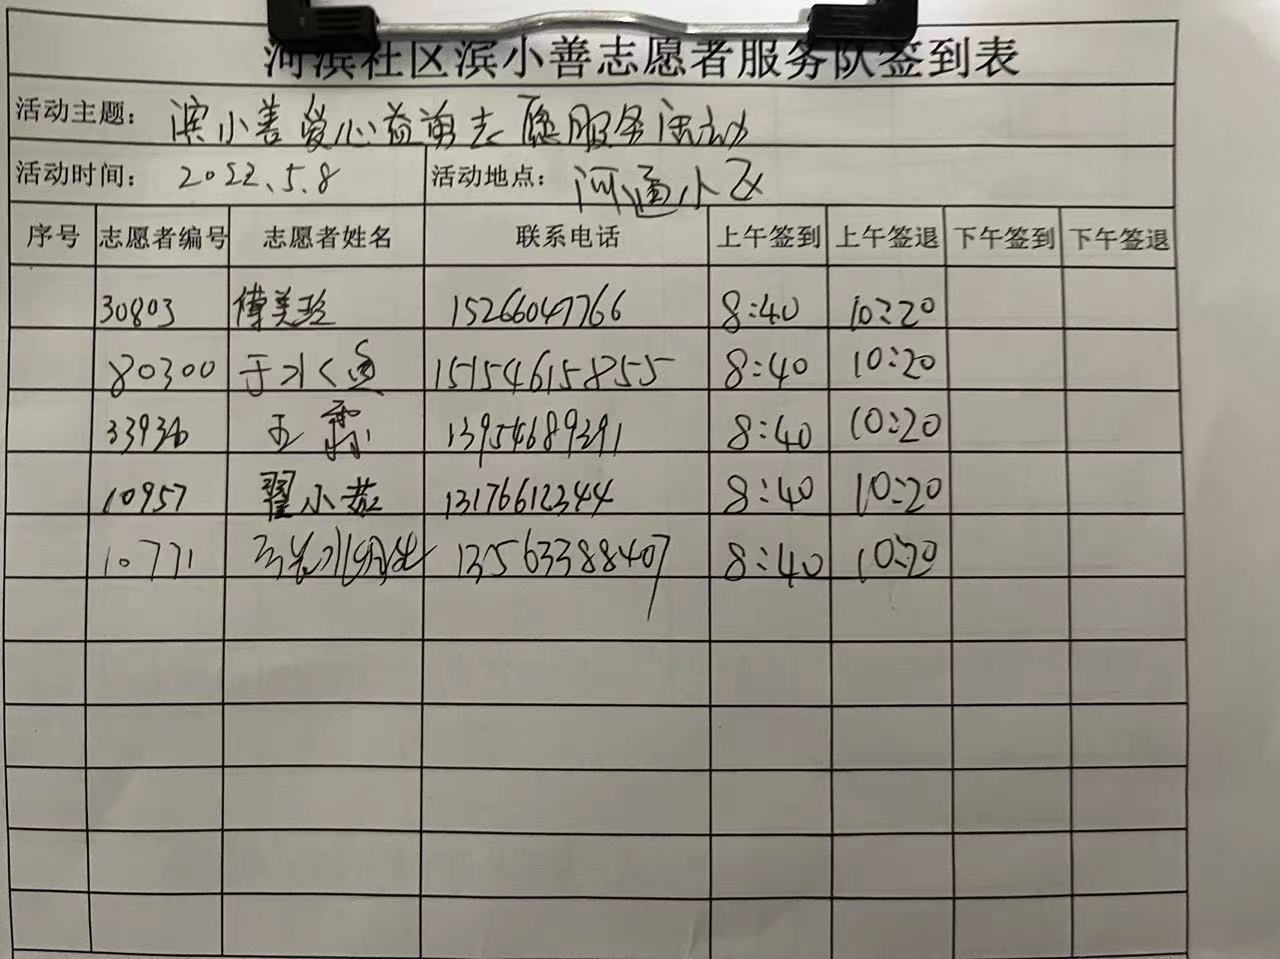 河滨社区滨小善志愿者服务队签到表
活动主题： 滨小善爱心益剪志愿服务活动
活动时间： 2022.5.8 活动地点： 河通小区
序号 志愿者编号 志愿者姓名 联系电话 上午签到 上午签退 下午签到 下午签退
30803 傅美珍 15266047766 8:40 10:20
80300 于水 151546158555 8:40 10:20
33936 王霞 13954689391 8:40 10:20
10957 翟小茹 13176612344 8:40 10:20
10771 13563388407 8:40 10:20